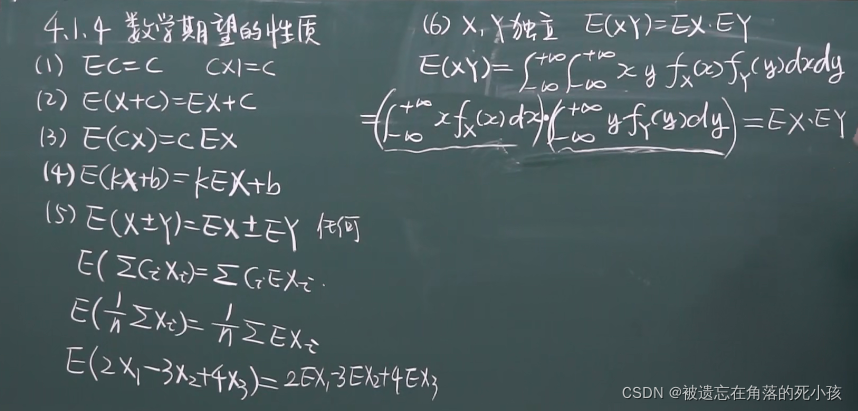 4.1.4 数学期望的性质
(1) EC=C C×1=C
(2) E(X+C)=EX+C
(3) E(CX)=CEX
(4) E(kX+b)=kEX+b
(5) E(X±Y)=EX±EY 任何
E(ΣCᵢXᵢ)=ΣCᵢEXᵢ.
E(1/n ΣXᵢ)=1/n ΣEXᵢ
E(2X₁-3X₂+4X₃)=2EX₁-3EX₂+4EX₃
(6) X,Y独立 E(XY)=EX·EY
E(XY)=∫₋∞⁺∞∫₋∞⁺∞ x y f_X(x)f_Y(y)dxdy
=(∫₋∞⁺∞ x f_X(x)dx)·(∫₋∞⁺∞ y f_Y(y)dy)=EX·EY
CSDN @被遗忘在角落的死小孩